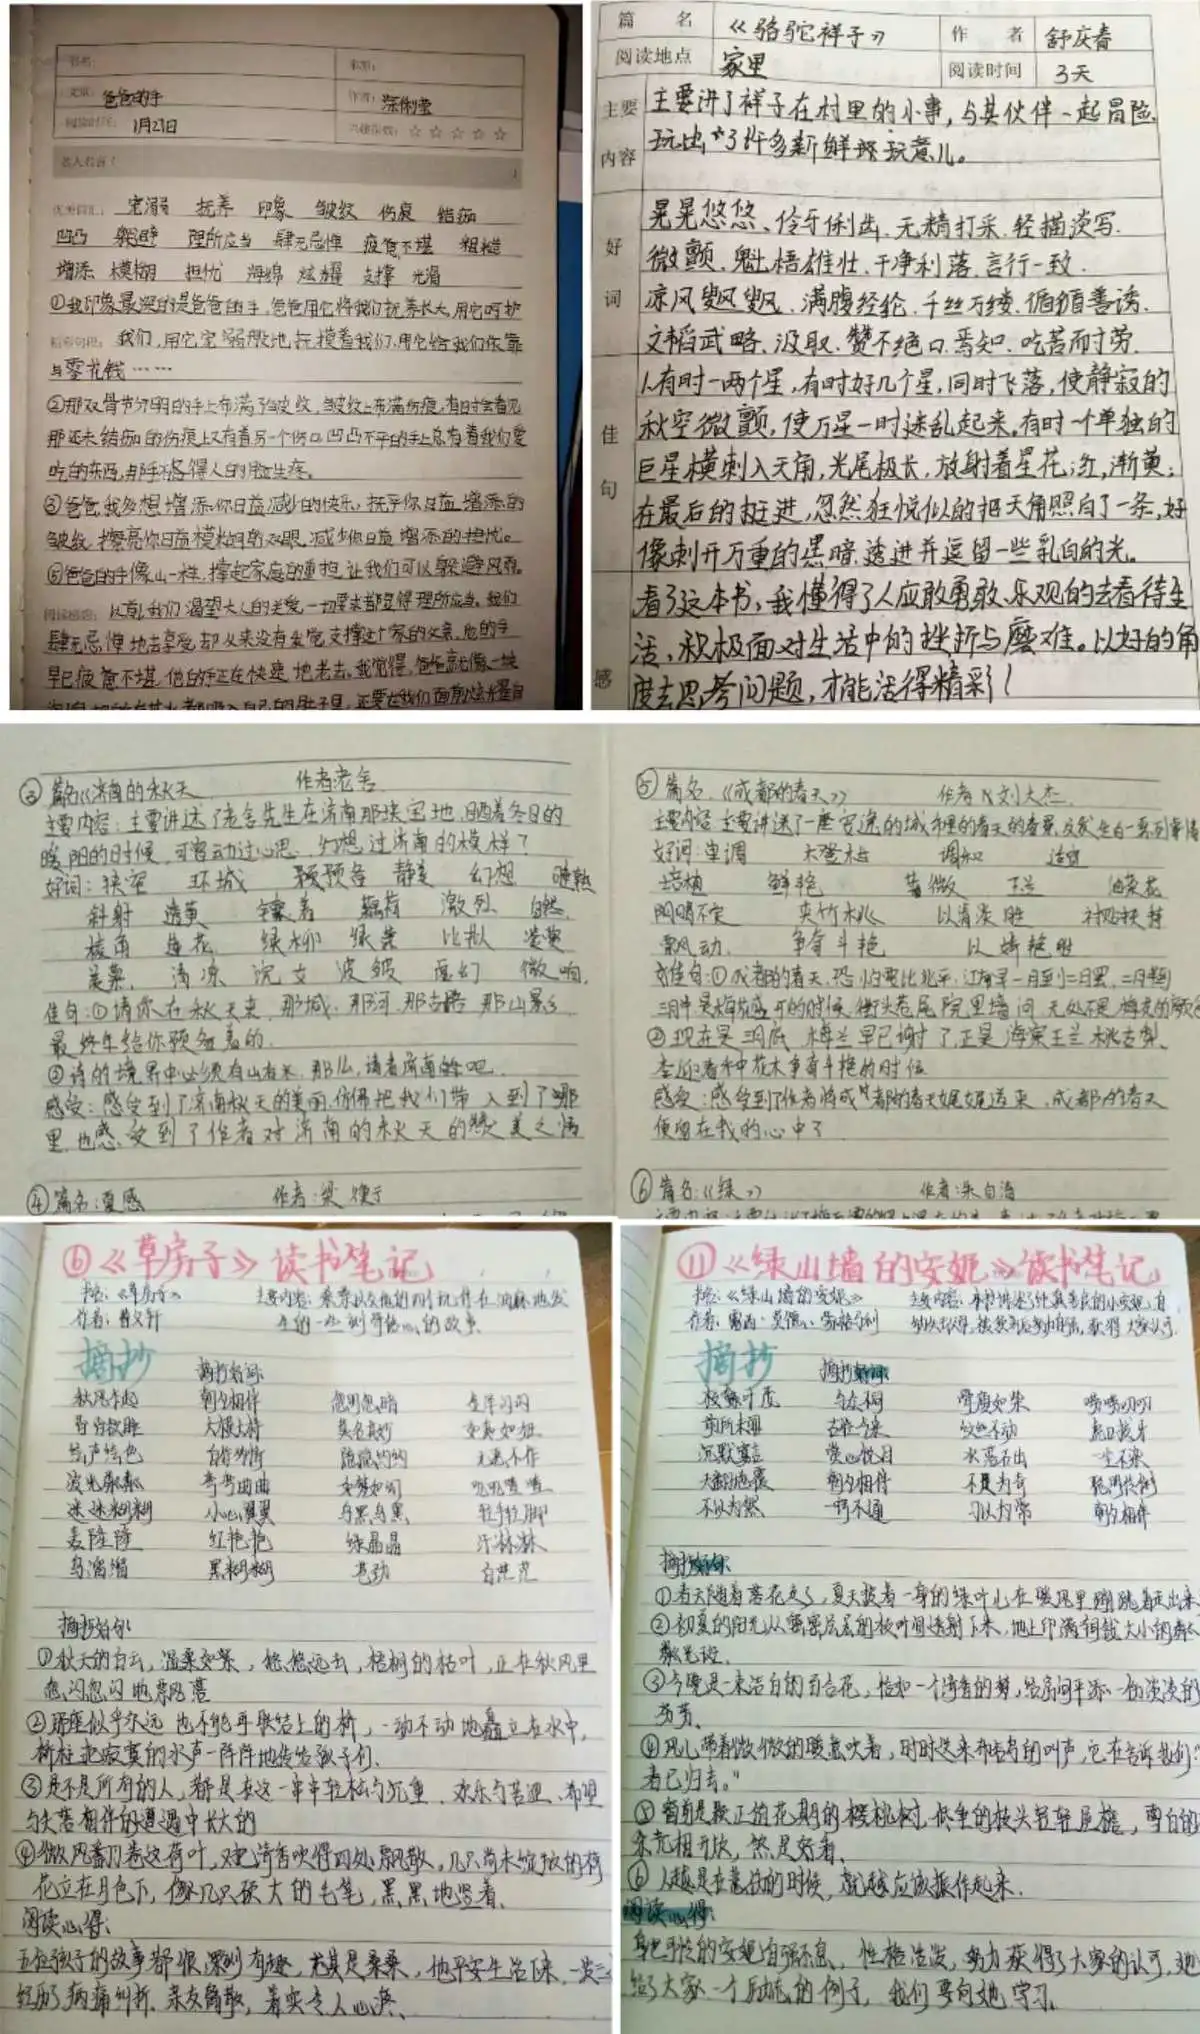 爸爸的手
1月27日
宠溺 抚养 印象 皱纹 伤痕 结痂
凹凸 躲避 理所应当 肆无忌惮 疲惫不堪 粗糙
增添 模糊 担忧 海绵 炫耀 支撑 光滑
①我印象最深的是爸爸的手,爸爸用它将我们抚养长大,用它呵护
我们,用它宠溺般地抚摸着我们,用它给我们依靠
与零花钱……
②那双骨节分明的手上布满了皱纹,皱纹上布满伤痕,有时会看见
那还未结痂的伤痕上又有着另一个伤口,凹凸不平的手上总有着我们爱
吃的东西,
③爸爸,我多想增添你日益减少的快乐,抚平你日益增添的
皱纹,擦亮你日益模糊的双眼,减少你日益增添的担忧。
⑤爸爸的手像山一样,撑起家庭的重担,让我们可以躲避风雨。
以前,我们渴望大人的关爱,一切要求都显得理所应当,我们
肆无忌惮地去享受,却从来没有发觉支撑这个家的父亲,他的手
早已疲惫不堪,他的手正在快速地老去,我觉得,爸爸就像一块
篇名 《骆驼祥子》 作者 舒庆春
阅读地点 家里 阅读时间 3天
主要 主要讲了祥子在村里的小事,与其伙伴一起冒险,
内容 玩出了许多新鲜玩意儿。
晃晃悠悠、伶牙俐齿、无精打采、轻描淡写.
好 微颤、魁梧雄壮、干净利落、言行一致.
词 凉风飕飕、满腹经纶、千丝万缕、循循善诱、
文韬武略、汲取、赞不绝口、焉知、吃苦耐劳.
1.有时一两个星,有时好几个星,同时飞落,使静寂的
佳 秋空微颤,使万星一时迷乱起来。有时一个单独的
句 巨星横刺入天角,光尾极长,放射着星花;红,渐黄;
在最后的挺进,忽然狂悦似的把天角照白了一条,好
像刺开万重的黑暗,透进并逗留一些乳白的光。
看了这本书,我懂得了人应敢勇敢、乐观的去看待生
感 活,积极面对生活中的挫折与磨难。以好的角
度去思考问题,才能活得精彩!
③篇名《济南的秋天 作者老舍
主要内容:主要讲述了老舍先生在济南那块宝地,晒着冬日的
暖阳的时候,可曾动过心思,幻想过济南的模样?
好词:狭窄 环城 预备 静美 幻想 睡熟
斜射 清黄 镶着 激烈 自然
棱角 莲花 绿柳 绿 比拟
清凉 波皱 虚幻 微响
佳句:①请你在秋天来。那城,那河,那古路,那山影,
最终年给你预备着的.
②诗的境界中必须有山有水.那么,请看济南吧.
感受:感受到了济南秋天的美丽,仿佛把我们带入到了哪
里,也感受到了作者对济南的秋天的赞美之情
④篇名:夏感 作者:梁衡
⑤篇名.《成都的春天》 作者《刘大杰.
主要内容:主要讲述了一座安逸的城市里的春天的春景,
好词:单调 调和 适宜
培植 鲜艳 蔷薇 玉兰 油菜花
阴晴不定 夹竹桃 以清淡胜
飘动. 争奇斗艳 以娇艳胜
佳句:①成都的春天,恐怕要比北平、江南早一月至二日罢,二月半到
三月半是梅花盛开的时候,街头巷尾,院里墙间,无处不是梅花的颜色
②现在是三月底,梅兰早已谢了,正是海棠玉兰桃杏梨
李迎春种花木争奇斗艳的时候
感受:感受到了作者将成都的春天娓娓道来,成都的春天
便留在我的心中了
⑥篇名:《绿》 作者:朱自清
⑥《草房子》读书笔记
书名:《草房子》 主要内容:桑桑以及他的四个玩伴在油麻地发
作者:曹文轩 生的一些刻骨铭心的故事.
摘抄 摘抄好词:
秋风乍起 朝夕相伴 忽明忽暗 金泽闪闪
大模大样 莫名其妙 如痴如狂
绘声绘色 自作多情 隐隐约约 无恶不作
波光粼粼 弯弯曲曲 如梦如幻 吼吼喳喳
迷迷糊糊 小心翼翼 乌黑乌黑 轻手轻脚
麦隆隆 红艳艳 绿晶晶 汗淋淋
乌溜溜 黑糊糊 苍劲 白茫茫
摘抄好句:
①秋天的白云,温柔如絮,悠悠远去,梧桐的枯叶,正在秋风里
忽闪忽闪地飘落
②那座似乎永远也不能再联结上的桥,一动不动地矗立在水中,
桥柱把寂寞的水声一阵阵地传给孩子们.
③是不是所有的人,都是在这一串串轻松与沉重、欢乐与苦涩、希望
与失落相伴的遭遇中长大的
④微风翻卷这荷叶,又把清香吹得四处飘散,几只尚未绽放的荷
花立在月色下,像几只硕大的毛笔,黑黑地竖着.
阅读心得:
五位孩子的故事都很深刻有趣,尤其是桑桑,他平安生活下来,
经历了病痛折磨、亲友离散,着实令人心疼.
⑪《绿山墙的安妮》读书笔记
书名:《绿山墙的安妮》 主要内容:本书讲述了纯真善良的小安妮,自
摘抄 摘抄好词:
骨瘦如柴 唠唠叨叨
前所未闻 古往今来 纹丝不动 龇口獠牙
沉默寡言 赏心悦目 水落石出 一尘不染
天翻地覆 朝夕相伴 不足为奇 聪明伶俐
不以为然 一窍不通 习以为常 朝夕相伴
摘抄好句:
①春天随着落花走了,夏天披着一身的绿叶儿在暖风里蹦跳着走出来
②初夏的阳光从密密层层的枝叶间透射下来,地上印满铜钱大小的粼
粼光斑.
③今晚是一朵洁白的百合花,恰如一个清香的梦,给房间平添一份淡淡的
芳香.
④风儿带着微微的暖意吹着,时时送来布谷鸟的叫声,它在告诉我们:"
春已归去。"
⑤窗前是颗正值花期的樱桃树,低垂的枝头轻轻屋檐,雪白的
⑥人越是在意志的时候,就越应该振作起来.
阅读心得:
身世可怜的安妮自强不息,性格活泼,努力获得了大家的认可,她
给了大家一个励志的例子,我们要向她学习.